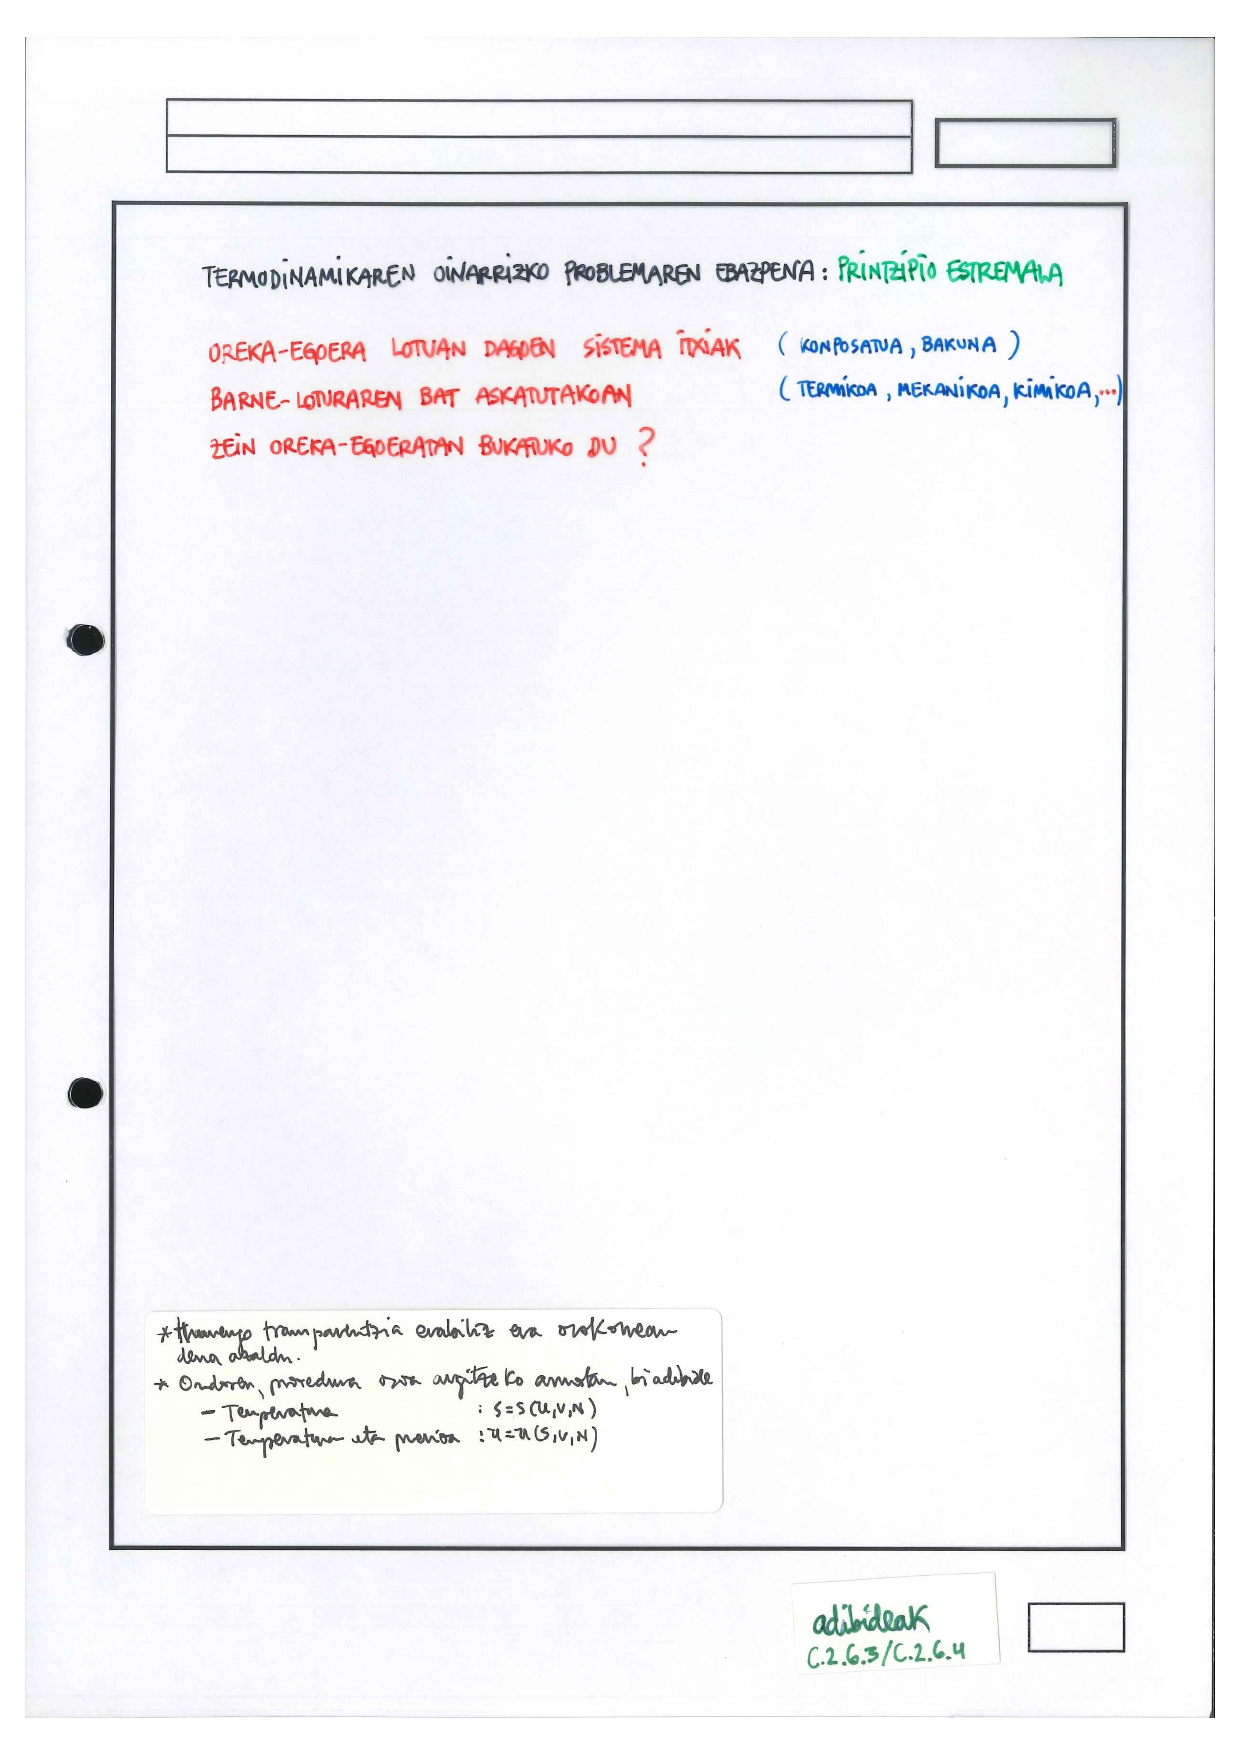 TERMODINAMIKAREN OINARRIZKO PROBLEMAREN EBAZPENA: PRINTZIPIO ESTREMALA
OREKA-EGOERA LOTUAN DAGOEN SISTEMA ITXIAK (KONPOSATUA, BAKUNA)
BARNE-LOTURAREN BAT ASKATUTAKOAN (TERMIKOA, MEKANIKOA, KIMIKOA,...)
ZEIN OREKA-EGOERATAN BUKATUKO DU ?
* Hurrengo transparentzia erabiliz era orokorrean
dena azaldu.
* Ondoren, prozedura osoa argitzeko asmotan, bi adibide
- Temperatura : S=S(U,V,N)
- Temperatura eta presioa : U=U(S,V,N)
adibideak
C.2.6.3/C.2.6.4